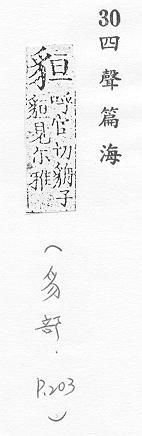 30四聲篇海
貆
呼官切貈子
貆見尔雅
(豸部.P.203)